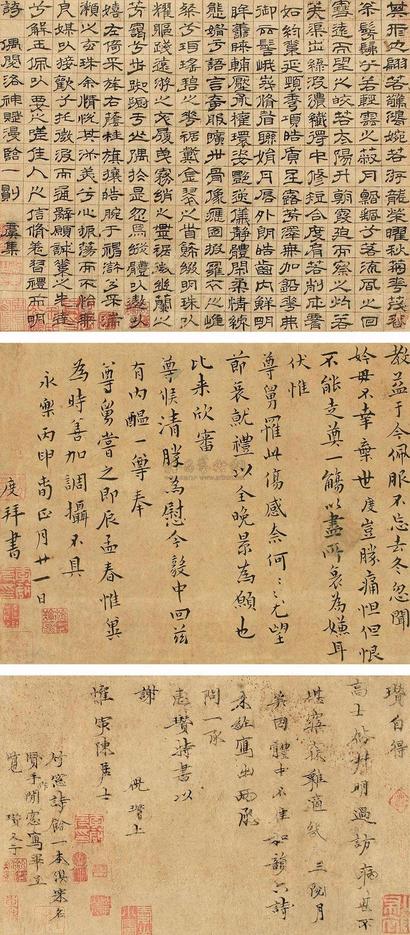 其形也翩若驚鴻婉若游龍榮曜秋菊華茂春
松髣髴兮若輕雲之蔽月飄颻兮若流風之回
雪遠而望之皎若太陽升朝霞迫而察之灼若
芙蕖出淥波穠纖得中修短合度肩若削成腰
如約素延頸秀項皓質呈露芳澤無加鉛華弗
御雲髻峩峩脩眉聯娟丹唇外朗皓齒內鮮明
眸善睞輔靨承權瓌姿艷逸儀靜體閑柔情綽
態媚於語言奇服曠世骨像應圖披羅衣之璀
粲兮珥瑤碧之華裾戴金翠之首飾綴明珠以
耀軀踐遠游之文履曳霧綃之輕裾微幽蘭之
芳靄兮步踟躕於山隅於是忽焉縱體以遨以
嬉左倚采旄右蔭桂旗攘皓腕於神滸兮采湍
瀨之玄珠余情悅其淑美兮心振蕩而不怡無
良媒以接歡兮托微波而通辭願誠素之先達
兮解玉佩以要之嗟佳人之信脩羌習禮而明
詩 偶閱洛神賦漫臨一則 虞集
教益于今佩服不忘去冬忽聞
妗母不幸棄世度豈勝痛怛但恨
不能走奠一觴以盡所哀為嫌耳
伏惟
尊舅罹此傷感奈何〻尤望
節哀就禮以全晚景為願也
比來欣審
尊候清勝為慰今敦中回茲
有內醞一尊奉
尊舅嘗之即辰孟春惟冀
為時善加調攝不具
永樂丙申歲正月廿一日
度拜書
瓚自得
高士 明過訪病
難適 三復月
因體中不佳 詩
未能寫出
問一
惠瓚詩書以
謝 倪瓚上
惟寅陳居士
竹窗詩餘一本